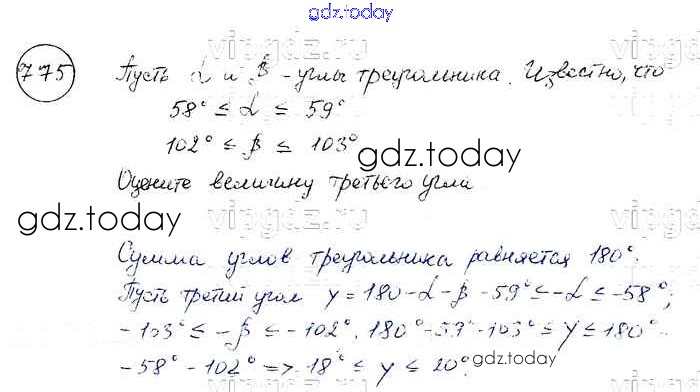 gdz.today
vipgdz.ru
775
Пусть α и β - углы треугольника. Известно, что
58° ≤ α ≤ 59°
102° ≤ β ≤ 103°
gdz.today
Оцените величину третьего угла
gdz.today
vipgdz.ru
Сумма углов треугольника равняется 180°.
Пусть третий угол y = 180-α-β -59° ≤ -α ≤ -58°;
-103° ≤ -β ≤ -102°. 180°-59°-103° ≤ y ≤ 180°-
-58°-102° => 18° ≤ y ≤ 20°.
gdz.today